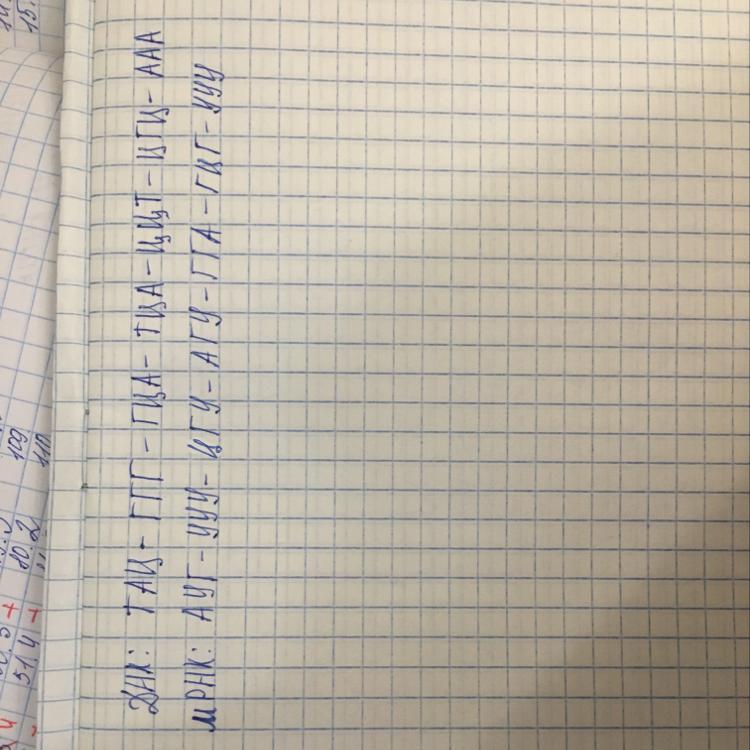 ДНК: ТАЦ - ГГГ - ГЦА - ТЦА - ЦЦТ - ЦГЦ - ААА
мРНК: АУГ - УУУ - ЦГУ - АГУ - ГГА - ГЦГ - УУУ
15.
109
110
51,4 +